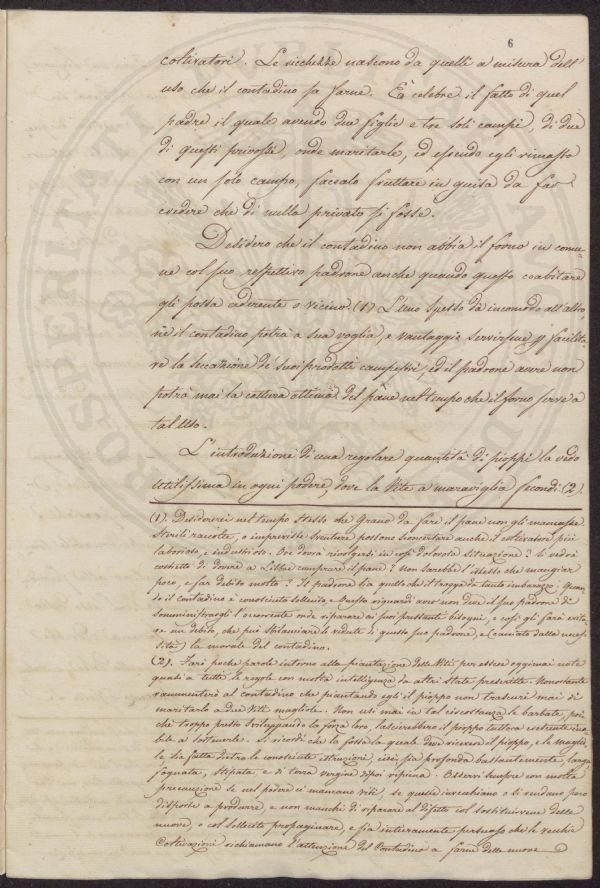 6
coltivatori. Le ricchezze nascono da quelli a misura dell'
uso che il contadino sa farne. È celebre il fatto di quel
padre il quale avendo due figlie e tre soli campi, di due
di questi privossi, onde maritarle, ed essendo egli rimasto
con un solo campo, facealo fruttare in guisa da far
credere che di nulla privato si fosse.
Desidero che il contadino non abbia il forno in comu-
ne col suo respettivo padrone anche quando questo coabitare
gli possa aderente o vicino. (1) L'uno spesso dà incomodo all'altro
nè il contadino potrà a sua voglia, e vantaggio servirsene p facilita-
re la seccazione de' suoi prodotti campestri, ed il padrone avere non
potrà mai la cottura ottima del pane nel tempo che il forno serve a
tal uso.
L'introduzione di una regolare quantità di pioppi la vedo
utilissima in ogni podere, dove la Vite a maraviglia fecondi. (2)
(1). Desidererei nel tempo stesso che Grano da fare il pane non gli mancasse.
Sterili raccolte, o imprevviste sventure possono sconcertare anche il coltivatore più
laborioso, e industrioso. Ove dovrà rivolgersi in così dolorosa situazione? Si vedrà
costretto di dovere a Libbre comprare il pane? Non sarebbe l'istesso che mangiar
poco, e far debito molto? Il padrone sia quello che il tragga da tanto imbarazzo: Quan-
do il contadino è conosciuto sollecito, e Onesto riguardi aver non dee il suo padrone di
somministrargli l'occorrente onde riparare ai suoi prestanti bisogni, e così gli farà evita-
re un debito, che può sbilanciare le vedute di questo suo padrone, e (causato dalla neces-
sità) la morale del contadino.
(2). Farò poche parole intorno alla piantazione delle Viti per essere oggimai note
quasi a tutti le regole con molta intelligenza da altri state prescritte. Nonostante
rammenterò al contadino che piantando egli il pioppo non trascuri mai di
maritarlo a due Viti magliole. Non usi mai in tal circostanza le barbate, poi-
chè troppo presto sviluppando la forza loro, lascierebbero il pioppo tuttora crescente ina-
bile a sostenerle. Si ricordi che la fossa la quale deve ricevere il pioppo, e le maglio-
le, sia fatta dietro le conosciute istruzioni, cioè, sia profonda bastantemente, larga
fognata, stipata, e di terra vergine dipoi ripiena. Osservi sempre con molta
precauzione se nel podere ci mancano viti, se queste invecchiano o si rendano poco
disposte a produrre, e non manchi di riparare al difetto col sostituirvene delle
nuove, o col sollecito propaginare, e sia intieramente persuaso che le vecchie
Coltivazioni richiamano l'attenzione del Contadino a farne delle nuove